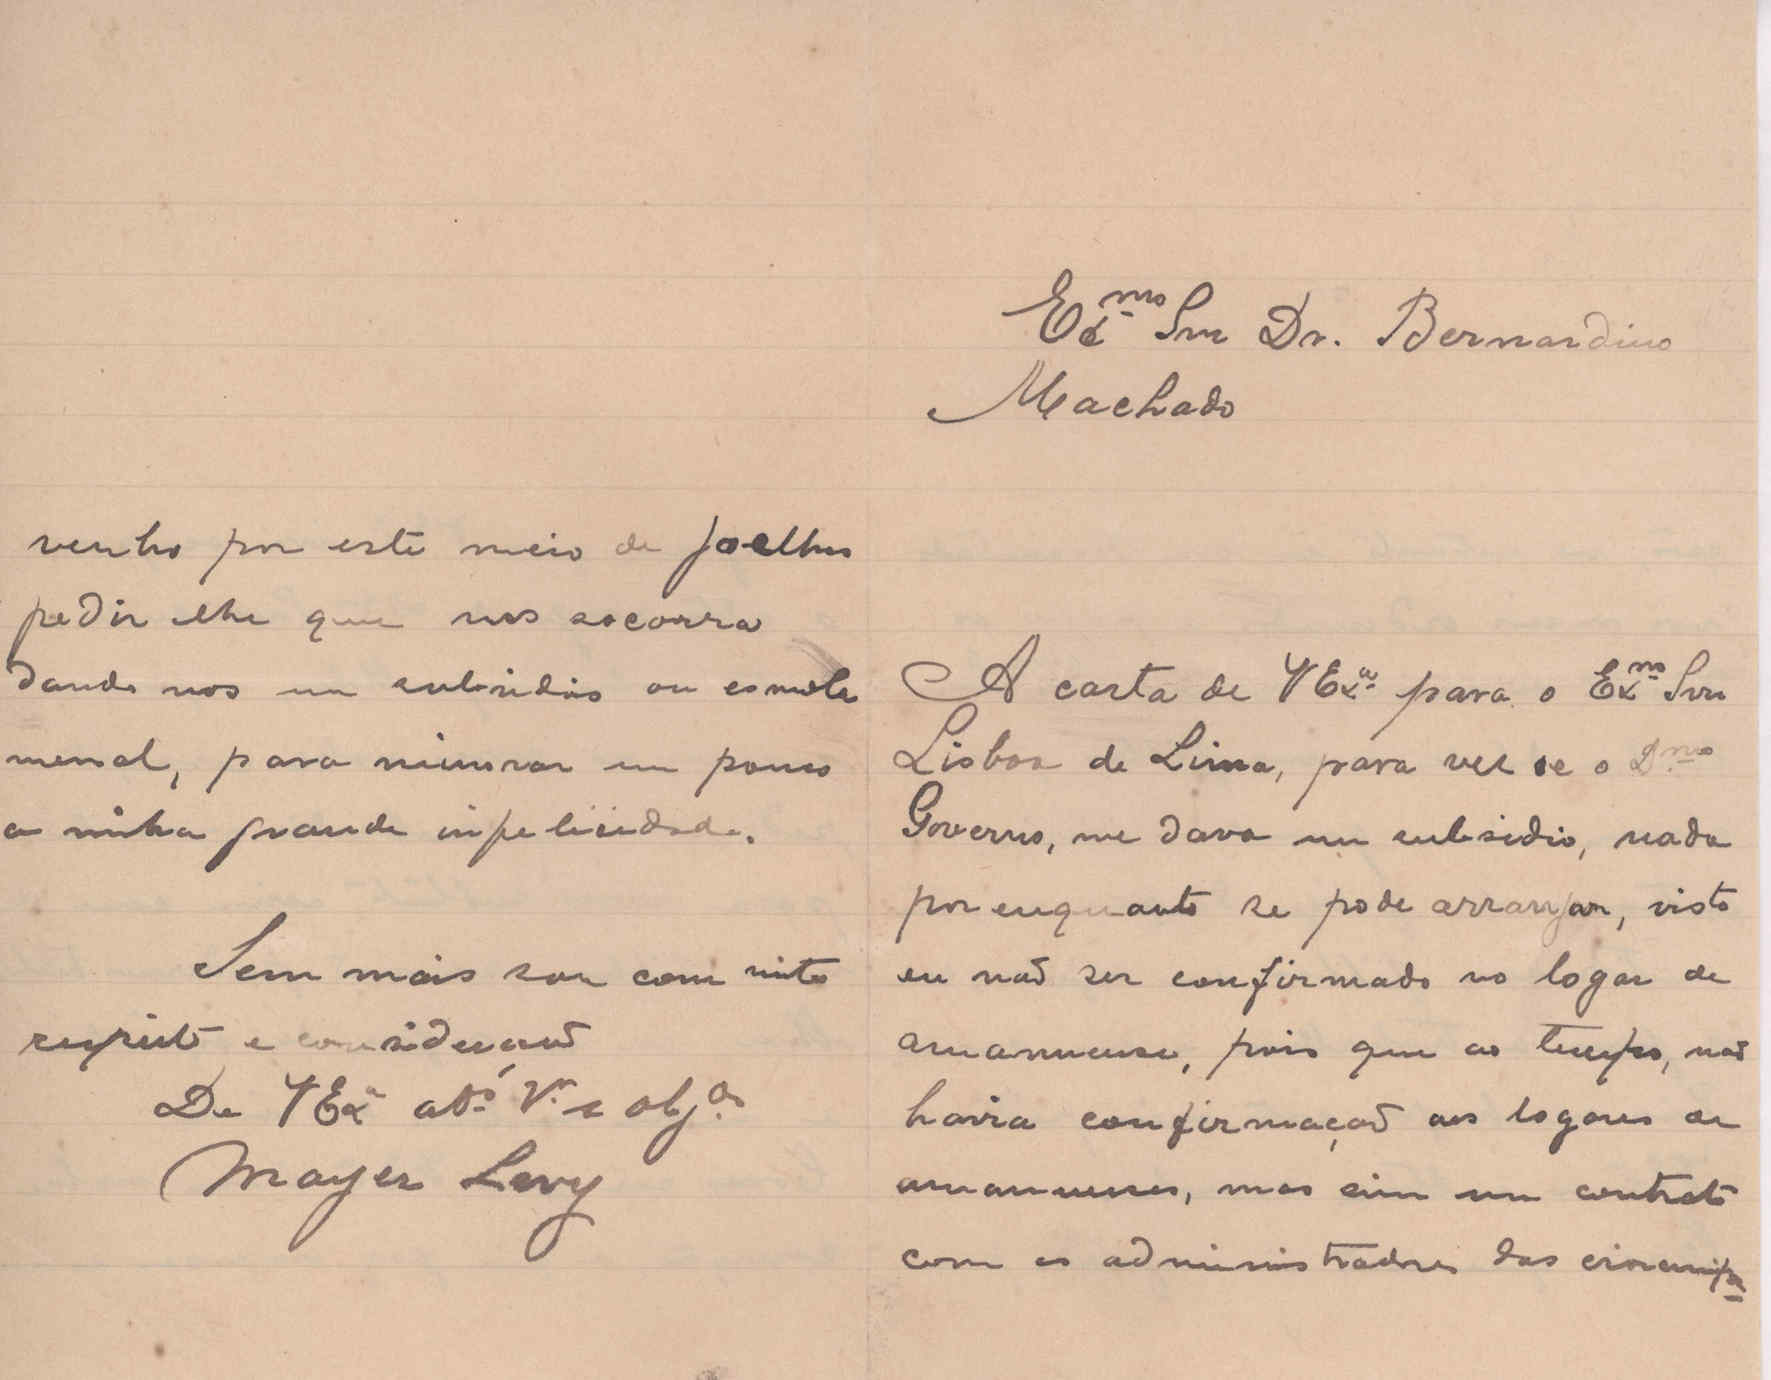 Ex.mo Snr Dr. Bernardino
Machado
A carta de VEx.a para o Ex.mo Snr
Lisboa de Lima, para ver se o D.mo
Governo, me dava um subsidio, nada
por enquanto se pode arranjar, visto
eu não ser confirmado no logar de
amanuense, pois que ao tempo, não
havia confirmação aos logares de
amanuenses, mas sim um contrato
com os administradores das
venho por este meio de joelhos
pedir lhe que nos socorra
dando nos um subsidio ou esmola
mensal, para minorar um pouco
a minha grande infelicidade.
Sem mais sou com mito
respeito e consideração
De VEx.a at.o V.r e obg.do
Mayer Levy